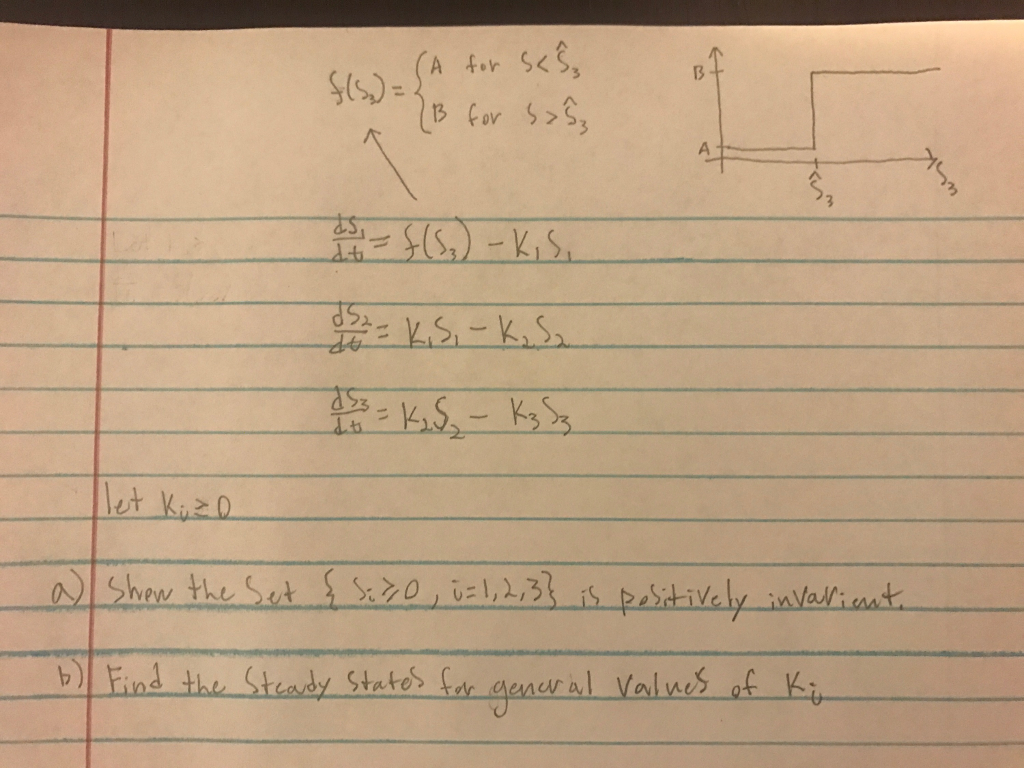 f(S₃) = { A for S < Ŝ₃
B for S > Ŝ₃
B
A
Ŝ₃
S₃
dS₁/dt = f(S₃) - K₁S₁
dS₂/dt = K₁S₁ - K₂S₂
dS₃/dt = K₂S₂ - K₃S₃
let Kᵢ ≥ 0
a) Show the Set { Sᵢ ≥ 0, i=1,2,3} is positively invarient.
b) Find the Steady States for general values of Kᵢ